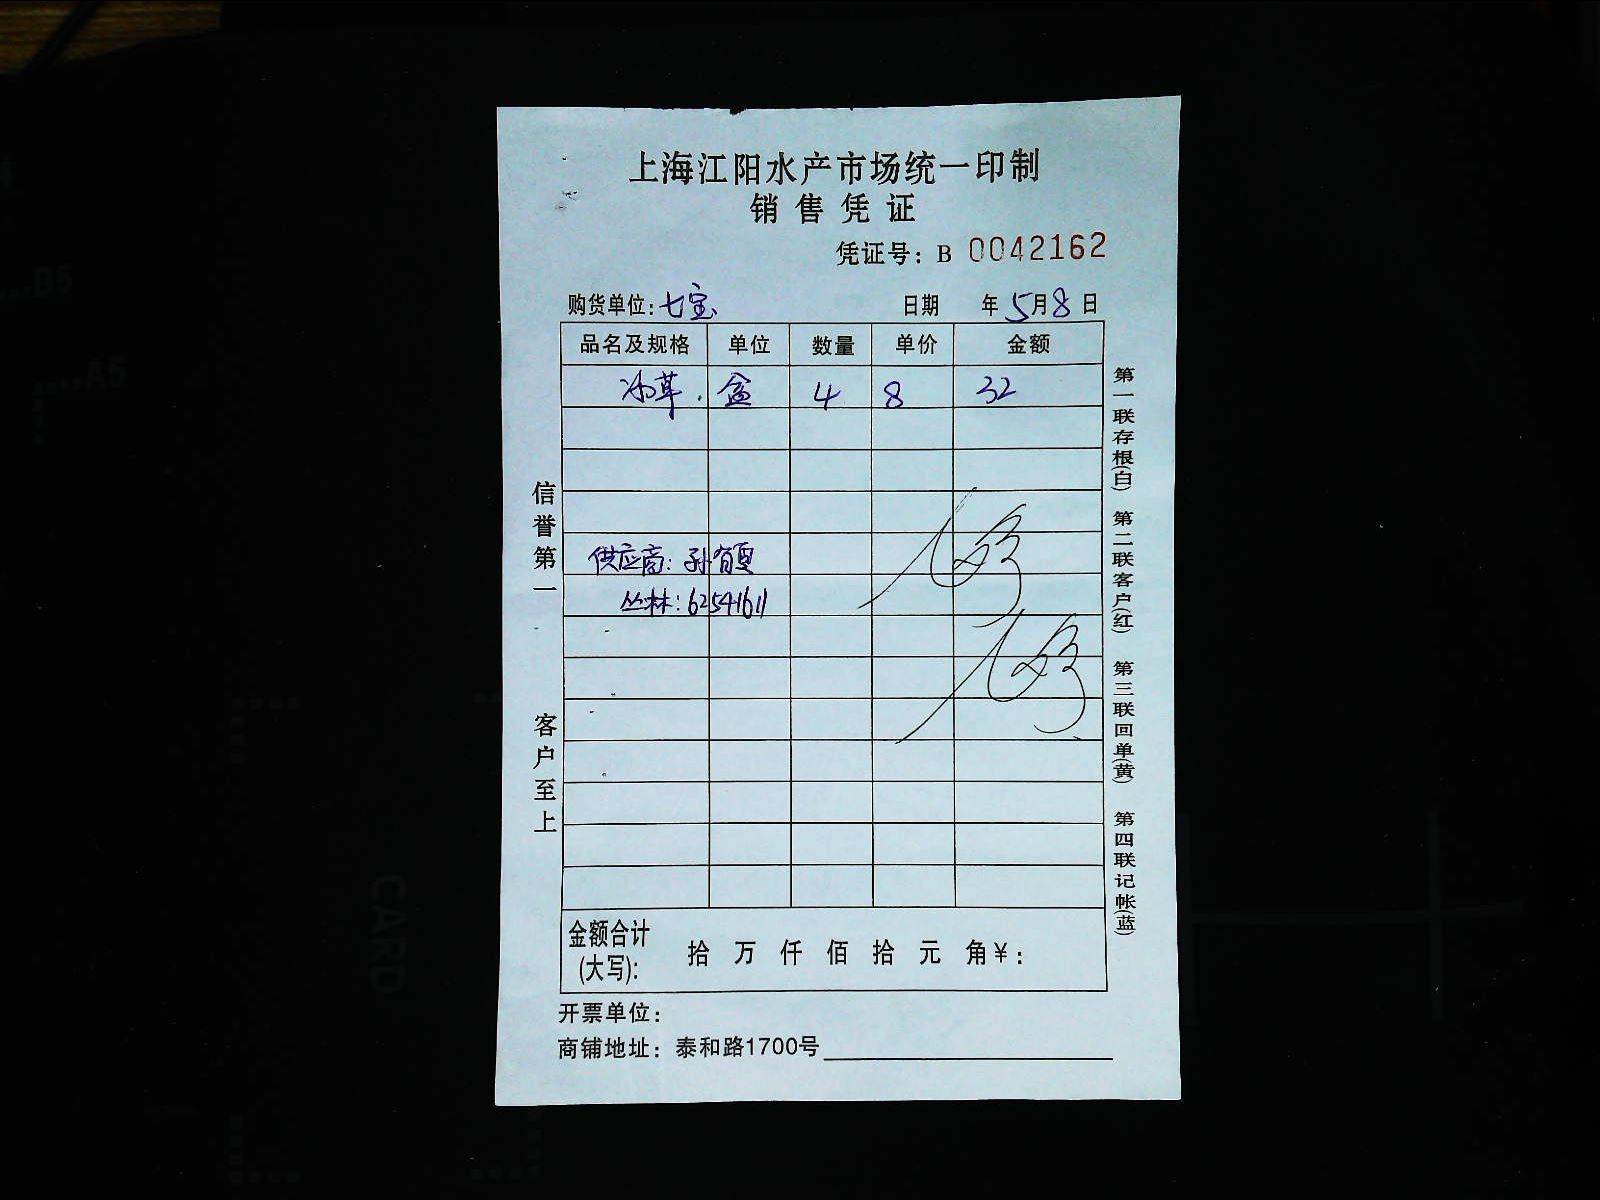 上海江阳水产市场统一印制
销售凭证
凭证号：B 0042162
购货单位：七宝 日期 年5月8日
品名及规格 单位 数量 单价 金额
冰草 盒 4 8 32
供应商：孙有夏
丛林：62541611
金额合计(大写)： 拾 万 仟 佰 拾 元 角￥：
开票单位：
商铺地址：泰和路1700号
信誉第一
客户至上
第一联存根(白) 第二联客户(红) 第三联回单(黄) 第四联记帐(蓝)
B5
A5
CARD